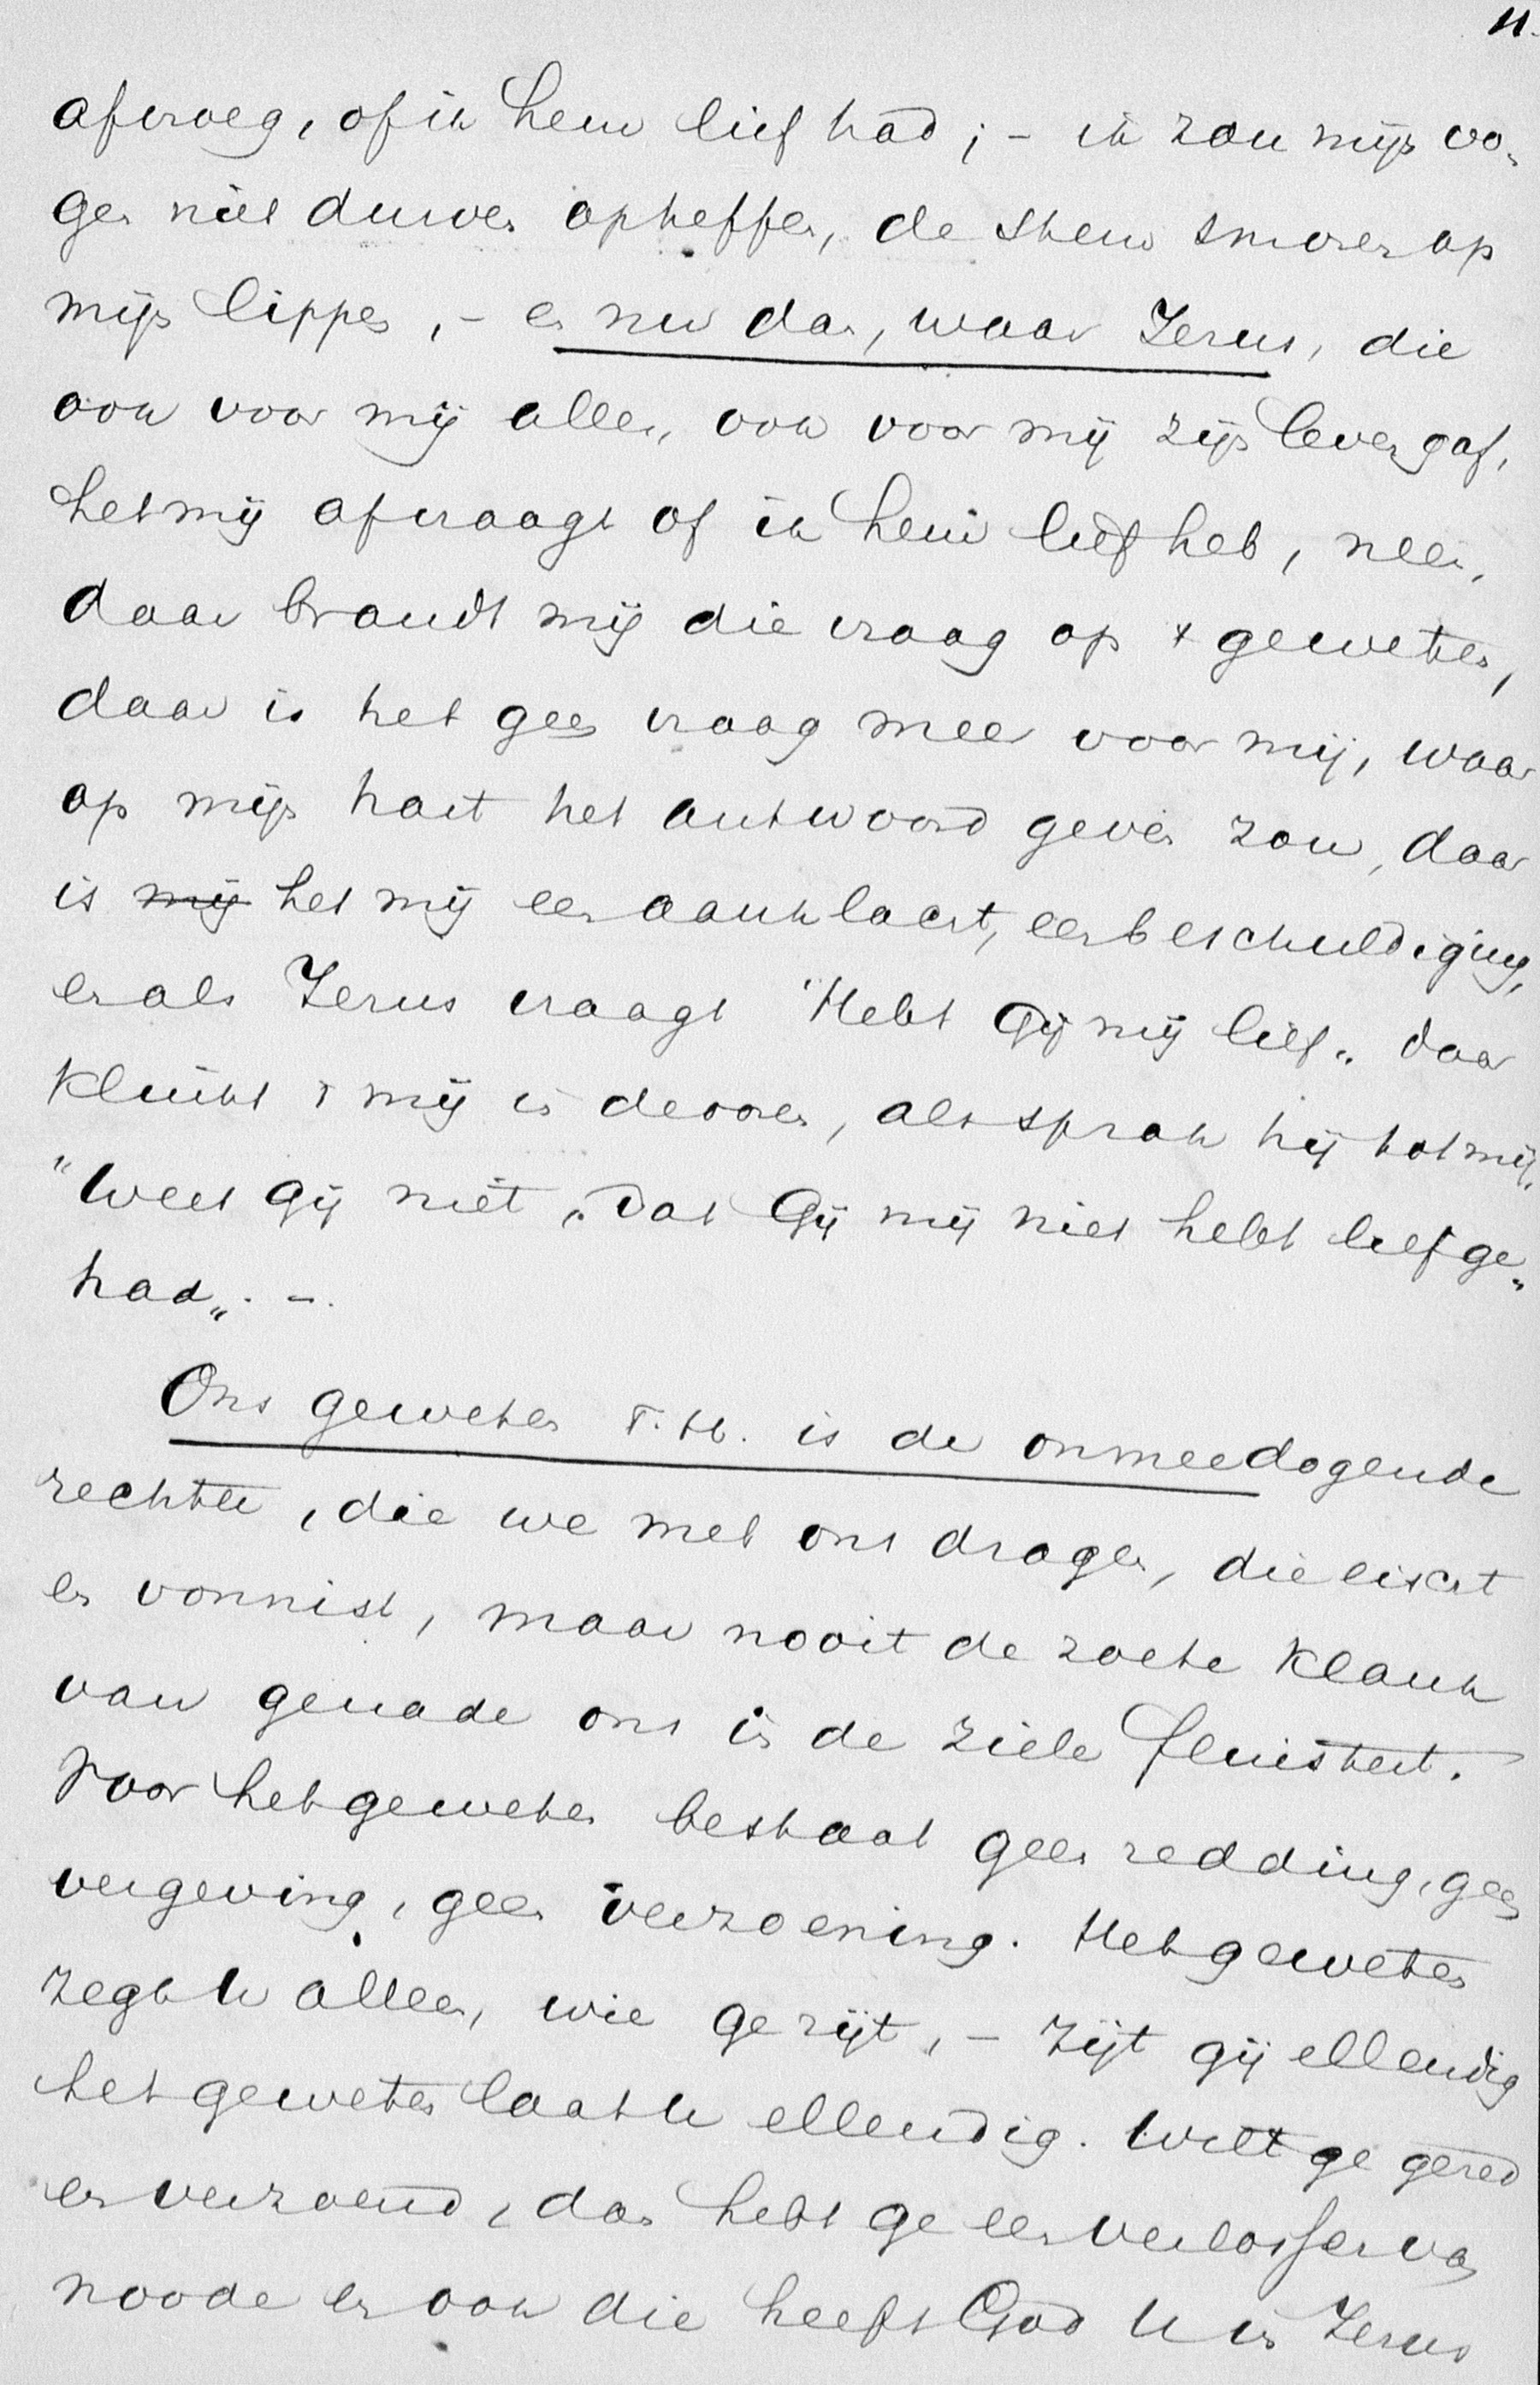 11.
afvroeg, of ik hem lief had; – ik zou mijn oo-
gen niet durven opheffen, de stem smoren op
mijn lippen, – en nu dan, waar Jezus, die
ook voor mij alles, ook voor mij zijn leven gaf,
het mij afvraagt of ik hem lief heb, neen,
daar brandt mij die vraag op 't geweten,
daar is het geen vraag meer voor mij, waar
op mijn hart het antwoord geven zou, daar
is mij het mij een aanklacht, een beschuldiging,
en als Jezus vraagt "Hebt Gij mij lief„ daar
klinkt 't mij in de ooren, als sprak hij tot mij,
"Weet gij niet, dat Gij mij niet hebt liefge„
had„. –.
Ons geweten T. H. is de onmeedogende
rechter, die we met ons dragen, die eischt
en vonnist, maar nooit de zoete klank
van genade ons in de ziele fluistert.
Voor het geweten bestaat geen redding, geen
vergeving, geen verzoening. Het geweten
zegt U alleen, wie ge zijt, – zijt gij ellendig
het geweten laat U ellendig. Wilt ge gered
en verzoend, dan hebt ge een verlosser van
noode en ook die heeft God U in Jezus